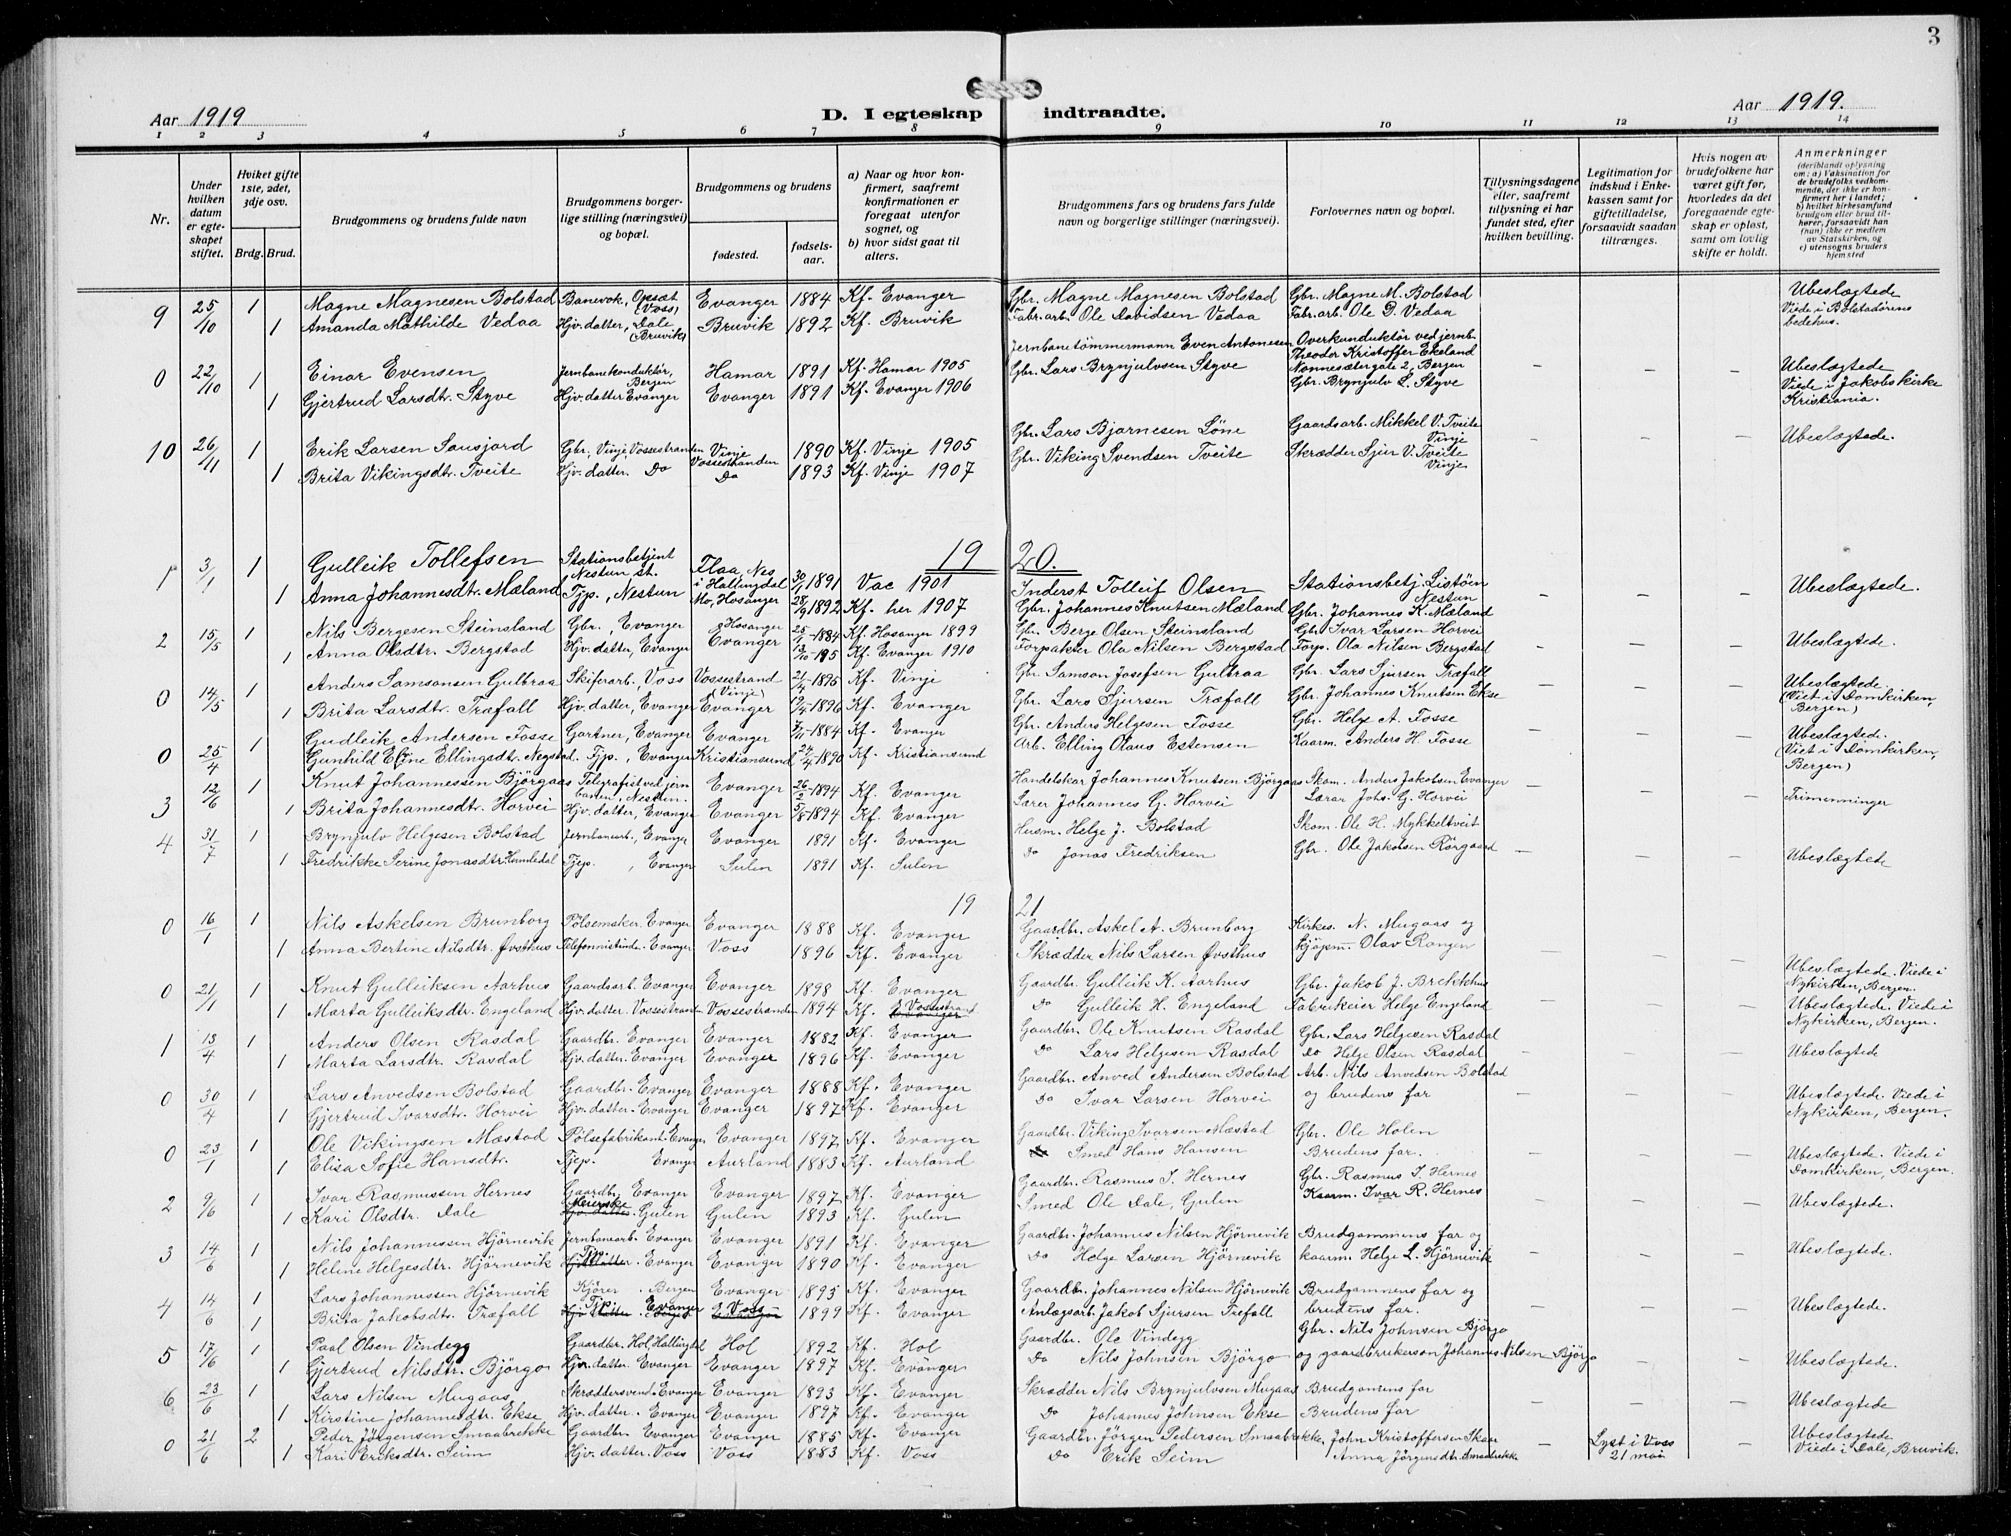 3
Aar 1919
D. I egteskap indtraadte.
Aar 1919.
1 2 3 4 5 6 7 8 9 10 11 12 13 14
Nr.
Under hvilken datum er egteskapet stiftet.
Hviket gifte 1ste, 2det, 3dje osv.
Brdg. Brud.
Brudgommens og brudens fulde navn
Brudgommens borgerlige stilling (næringsvei) og bopæl.
Brudgommens og brudens
fødested.
fødselsaar.
a) Naar og hvor konfirmert, saafremt konfirmationen er foregaat utenfor sognet, og
b) hvor sidst gaat til alters.
Brudgommens fars og brudens fars fulde navn og borgerlige stillinger (næringsvei).
Forlovernes navn og bopæl.
Tillysningsdagene eller, saafremt tillysning ei har fundet sted, efter hvilken bevilling.
Legitimation for indskud i Enkekassen samt for giftetilladelse, forsaavidt saadan tiltrænges.
Hvis nogen av brudefolkene har været gift før, hvorledes da det foregaaende egteskap er opløst, samt om lovlig skifte er holdt.
Anmerkninger
(deriblandt oplysning om: a) Vaksination for de brudefolks vedkommende, der ikke er konfirmert her i landet; b) hvilket kirkesamfund brudgom eller brud tilhører, forsaavidt han (hun) ikke er medlem av Statskirken, og c) utensogns bruders hjemsted
9 25/10 1 Magne Magnesen Bolstad Banevok, Opsæt (Voss) Evanger 1884 Kf. Evanger Gbr. Magne Magnesen Bolstad Gbr. Magne M. Bolstad Ubeslægtede
1 Amanda Mathilde Vedaa Hjv. datter, Dale (Bruvik) Bruvik 1892 Kf. Bruvik Fabr. arb. Ole Davidsen Vedaa Fabr. arb. Ole D. Vedaa Viede i Bolstadørens bedehus.
0 22/10 1 Einar Evensen Jernbanekonduktør, Bergen Hamar 1891 Kf. Hamar 1905 Jernbanetømmermann Even Antonesen Overkonduktør ved jernb. Theodor Kristoffer Ekeland Nonnesætergate 2, Bergen - - - Ubeslægtede
1 Gjertrud Larsdtr. Styve Hjv. datter Evanger Evanger 1891 Kf. Evanger 1906 Gbr. Lars Brynjulvsen Styve Gbr. Brynjulv L. Styve Viede i Jakobs kirke Kristiania.
10 26/11 1 Erik Larsen Sausjord Gbr, Vinje, Vossestranden Vinje Vossestranden 1890 Kf. Vinje 1905 Gbr. Lars Bjarnesen Løne Gaardsarb. Mikkel V. Tveite Vinje - - - Ubeslægtede.
1 Brita Vikingsdtr. Tveite Hjv. datter. Do Do 1893 Kf. Vinje 1907 Gbr. Viking Svendsen Tveite Skrædder Sjur V. Tveite Vinje
19 20.
1 3/1 1 Gulleik Tollefsen Stationsbetjent Nestun st. Flaa, Nes i Hallingdal 30/1 1891 Vac 1901 Inderst Tolleif Olsen Stationsbetj. Listøen Nestun - - - Ubeslægtede.
1 Anna Johannesdtr. Mæland Tjp., Nestun Mo, Hosanger 28/9 1892 Kf. her 1907 Gbr. Johannes Knutsen Mæland Gbr. Johannes K. Mæland
2 15/5 1 Nils Bergesen Steinsland Gbr., Evanger Hosanger 25/1-1884 Kf. Hosanger 1899 Gbr. Berge Olsen Steinsland Gbr. Ivar Larsen Horvei - - - Ubeslægtede.
1 Anna Olsdtr. Bergstad Hjv. datter, Evanger Evanger 13/10-195 Kf. Evanger 1910 Forpakter Ola Nilsen Bergstad Forp. Ola Nilsen Bergstad
0 14/5 1 Anders Samsonsen Gulbraa Skiferarb., Voss Vossestrand (Vinje) 21/4-1895 Kf. Vinje Gbr. Samson Josefsen Gulbraa Gbr. Lars Sjursen Træfall - - - Ubeslægtede.
1 Brita Larsdtr. Træfall Hjv. datter, Evanger Evanger 1896 Kf. Evanger Gbr. Lars Sjursen Træfall Gbr. Johannes Knutsen Ekse (Viet i Domkirken, Bergen)
0 25/4 1 Gudleik Andersen Fosse Gartner, Evanger Evanger 1884 Kf. Evanger Gbr. Anders Helgesen Fosse Gbr. Helge A. Fosse - - - Ubeslægtede.
Gunhild Eline Ellingsdtr. Negstad. Tjp., Evanger Kristiansund 24/4-1890 Kf. Kristiansund Arb. Elling Olaus Estensen Kaarm. Anders H. Fosse (Viet i Domkirken, Bergen)
3 12/6 1 Knut Johannessen Bjørgaas Telegrafist ved jernbanen, Nestun. Evanger 26/2-1894 Kf. Evanger Handelskar Johannes Knutsen Bjørgaas Skom. Anders Jakobsen Evanger - - - Trimenninger
1 Brita Johannesdtr. Horvei Hjv. datter, Evanger Evanger 5/8-1894 Kf. Evanger Lærer Johannes G. Horvei Lærar Johs. G. Horvei
4 31/7 1 Brynjulv Helgesen Bolstad Jernbanearb., Evanger Evanger 1891 Kf. Evanger Husm. Helge J. Bolstad Skom. Ole H. Mykkeltveit - - - Ubeslægtede
1 Fredrikke Serine Jonasdtr. Humledal Tjep., Evanger Sulen 1891 Kf. Sulen Do Jonas Fredriksen Gbr. Ole Jakobsen Rørgaard
19 21
0 16/1 1 Nils Askelsen Brunborg Pølsemaker. Evanger Evanger 1888 Kf. Evanger Gaardbr. Askel A. Brunborg Kirkes. N. Mugaas og - - - Ubeslægtede. Viede i
1 Anna Bertine Nilsdtr. Øvsthus Telefonistinde. Evanger Voss 1896 Kf. Evanger Skrædder Nils Larsen Øvsthus kjøpm. Olav Rongen Nykirken, Bergen.
0 21/1 1 Knut Gulleiksen Aarhus Gaardsarb. Evanger Evanger 1898 Kf. Evanger Gaardbr. Gulleik K. Aarhus Gbr. Jakob J. Brekkhus - - - Ubeslægtede. Viede i
1 Marta Gulleiksdtr. Engeland Hjv. datter. Vossestranden Vossestranden 1894 Kf. Vossestrand Do Gulleik H. Engeland Fabrikeier Helge Engeland Nykirken, Bergen.
1 13/4 1 Anders Olsen Rasdal Gaardbr. Evanger Evanger 1882 Kf. Evanger Gaardbr. Ole Knutsen Rasdal Gbr. Lars Helgesen Rasdal - - - Ubeslægtede
1 Marta Larsdtr. Rasdal Hjv. datter. Evanger Evanger 1896 Kf. Evanger Do Lars Helgesen Rasdal Do Helge Olsen Rasdal
0 30/4 1 Lars Anvedsen Bolstad Gaardbr. Evanger Evanger 1888 Kf. Evanger Gaardbr. Anved Andersen Bolstad Arb. Nils Anvedsen Bolstad - - - Ubeslægtede. Viede i
1 Gjertrud Ivarsdtr. Horvei Hjv. datter. Evanger Evanger 1897 Kf. Evanger Do Ivar Larsen Horvei og brudens far Nykirken, Bergen.
0 23/1 1 Ole Vikingsen Mæstad Pølsefabrikant. Evanger Evanger 1897 Kf. Evanger Gaardbr. Viking Ivarsen Mæstad Gbr. Ole Holen - - - Ubeslægtede. Viede i
1 Elisa Sofie Hansdtr. Tjep. Evanger Aurland 1883 Kf. Aurland Smed Hans Hansen Brudens far. Domkirken, Bergen.
2 9/6 1 Ivar Rasmussen Hernes Gaardbr. Evanger Evanger 1897 Kf. Evanger Gaardbr. Rasmus I. Hernes Gbr. Rasmus I. Hernes - - - Ubeslægtede.
1 Kari Olsdtr. Dale Meierske Gulen Gulen 1893 Kf. Gulen Smed Ole Dale, Gulen Kaarm. Ivar R. Hernes
3 14/6 1 Nils Johannessen Hjørnevik Jernbanearb. Evanger Evanger 1891 Kf. Evanger Gaardbr. Johannes Nilsen Hjørnevik Brudgommens far og - - - Ubeslægtede.
1 Heline Helgesdtr. Hjørnevik Evanger Evanger 1890 Kf. Evanger Do Helge Larsen Hjørnevik kaarm. Helge L. Hjørnevik
4 14/6 1 Lars Johannessen Hjørnevik Kjører. Bergen Evanger 1893 Kf. Evanger Gaardbr. Johannes Nilsen Hjørnevik Brudgommens far og - - - Ubeslægtede.
1 Brita Jakobsdtr. Træfall Evanger Voss 1899 Kf. Evanger Anlægsarb. Jakob Sjursen Trefall brudens far.
5 17/6 1 Paal Olsen Vindegg Gaardbr. Hol, Hallingdal Hol 1892 Kf. Hol Gaardbr. Ole Vindegg Gbr. Nils Johnsen Bjørgo - - Ubeslægtede.
1 Gjertrud Nilsdtr. Bjørgo Hjv. datter. Evanger Evanger 1897 Kf. Evanger Do Nils Johnsen Bjørgo og gaardbrukerson Johannes Nilsen Bjørgo
6 23/6 1 Lars Nilsen Mugaas Skræddersvend. Evanger Evanger 1893 Kf. Evanger Skrædder Nils Brynjulvsen Mugaas Brudgomens far - - - Ubeslægtede
1 Kirstine Johannesdtr. Ekse Hjv. datter. Evanger Evanger 1897 Kf. Evanger Do Johannes Johnsen Ekse Brudens far
0 21/6 2 Peder Jørgensen Smaabrekke Gaardbr. Evanger Evanger 1885 Kf. Evanger Gaardbr. Jørgen Pedersen Smaabrekke, John Kristoffersen Skaar - Lyst i Voss - Ubeslægtede
1 Kari Eriksdtr. Seim Hjv. datter. Voss Voss 1883 Kf. Voss Do Erik Seim Anna Jørgensdtr. Smaabrekke 21 mai Viede i Dale, Bruvik.